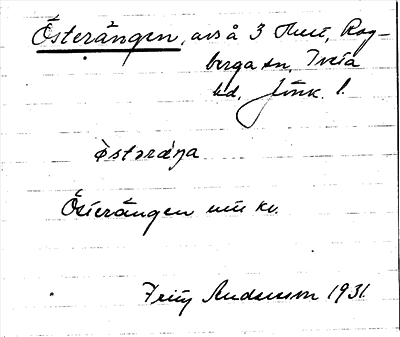 Österängen, avs å 3 Hult, Rog-
berga sn, Tveta
hd, Jönk. l.
östəräŋa
Österängen
Andersson 1931.